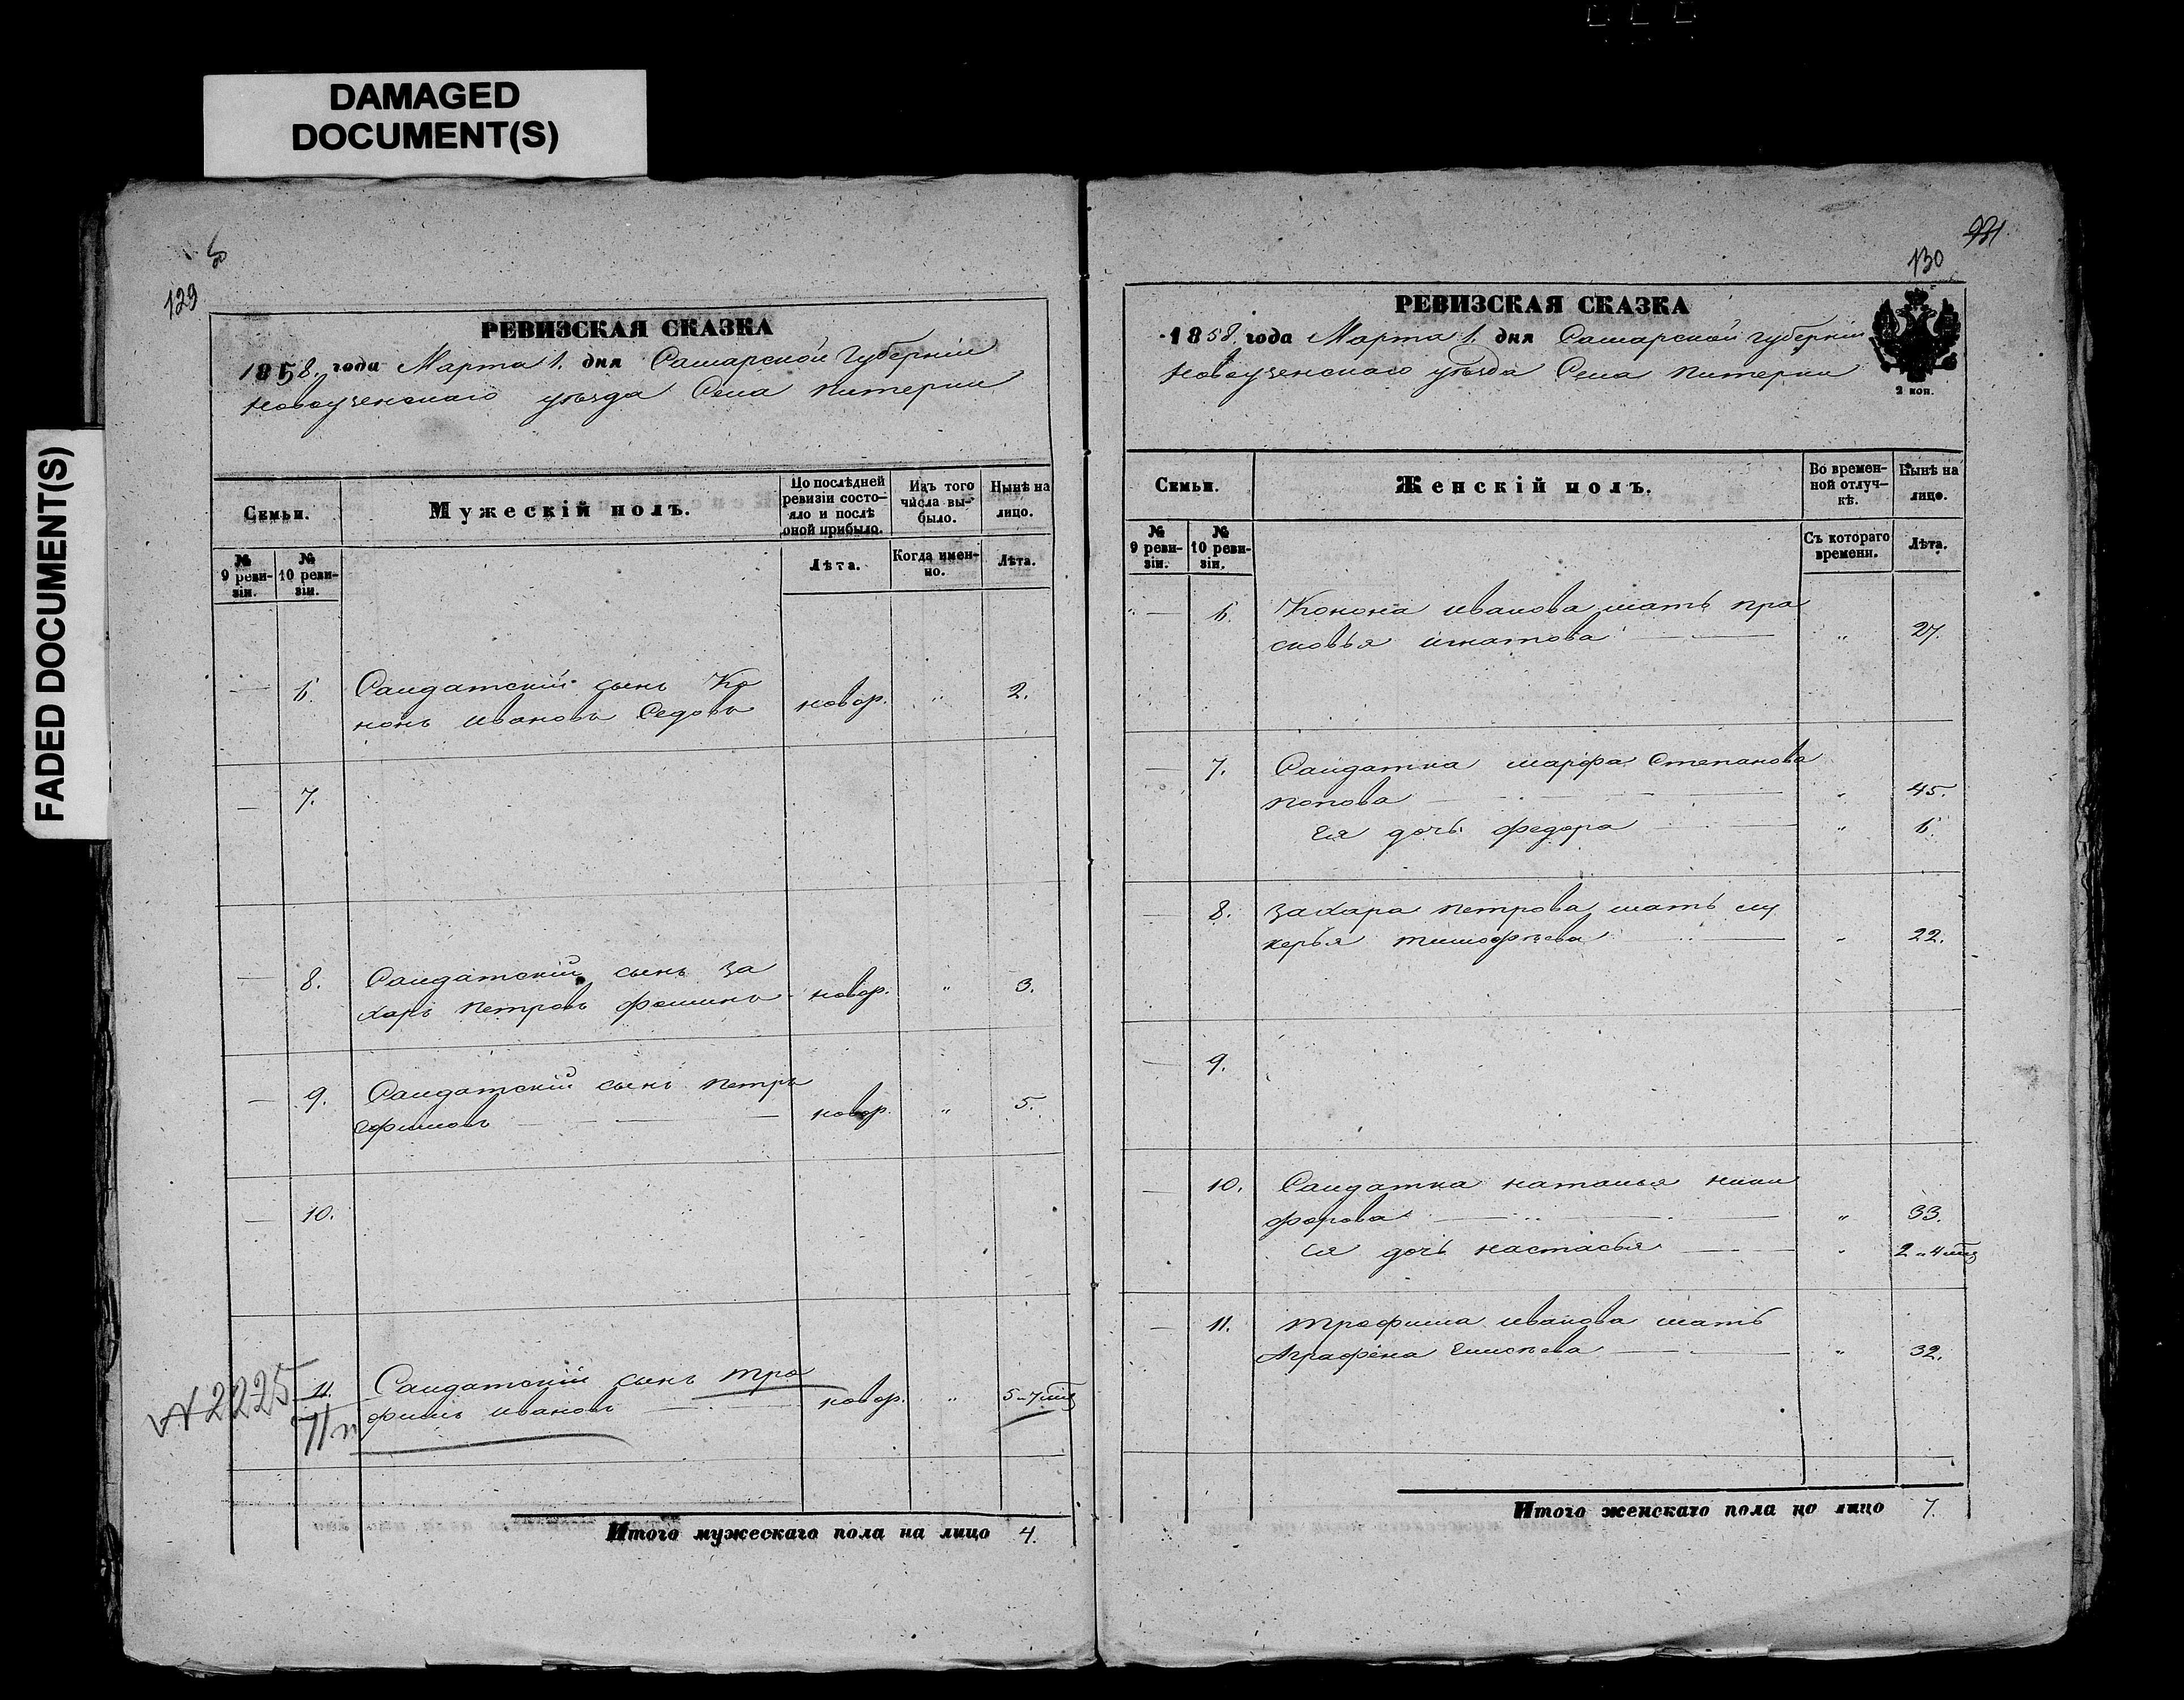 DAMAGED
DOCUMENT(S)
FADED DOCUMENT(S)
129
РЕВИЗСКАЯ СКАЗКА
1858. года Марта 1. дня Самарской Губерніи
Новоузенскаго уѣзда Села Питерки
Семьи.
Мужескій полъ.
По послѣдней
ревизіи состо-
яло и послѣ
оной прибыло.
Изъ того
числа вы-
было.
Нынѣ на
лицо.
№
9 реви-
зіи.
№
10 реви-
зіи.
Лѣта.
Когда имен-
но.
Лѣта.
— 6. Солдатскій сынъ Ко
нонъ Ивановъ Седовъ новор. „ 2.
— 7.
— 8. Солдатскій сынъ За
харъ Петровъ Фоминъ новор. „ 3.
— 9. Солдатскій сынъ Петръ
Ефимовъ новор. „ 5.
— 10.
№ 2225 11. Солдатскій сынъ Тро
фимъ Ивановъ новор. „ 5 „ 7 мѣс
Итого мужескаго пола на лицо 4.
931
130
РЕВИЗСКАЯ СКАЗКА
1858. года Марта 1. дня Самарской губерніи
Новоузенскаго уѣзда Села Питерки
2 коп.
Семьи.
Женскій полъ.
Во времен-
ной отлуч-
кѣ.
Нынѣ на
лицо.
№
9 реви-
зіи.
№
10 реви-
зіи.
Съ котораго
времени.
Лѣта.
— 6. Конона Иванова мать Пра
сковья Игнатова „ 27.
— 7. Солдатка Марфа Степанова
Попова „ 45.
Ея дочь Федора „ 6.
— 8. Захара Петрова мать Лу
керья Тимофѣева „ 22.
— 9.
— 10. Солдатка Наталья Ники
форова „ 33.
Ея дочь Настасья „ 2 „ 4 мѣс
— 11. Трофима Иванова мать
Аграфена Елисѣева „ 32.
Итого женскаго пола но лицо 7.